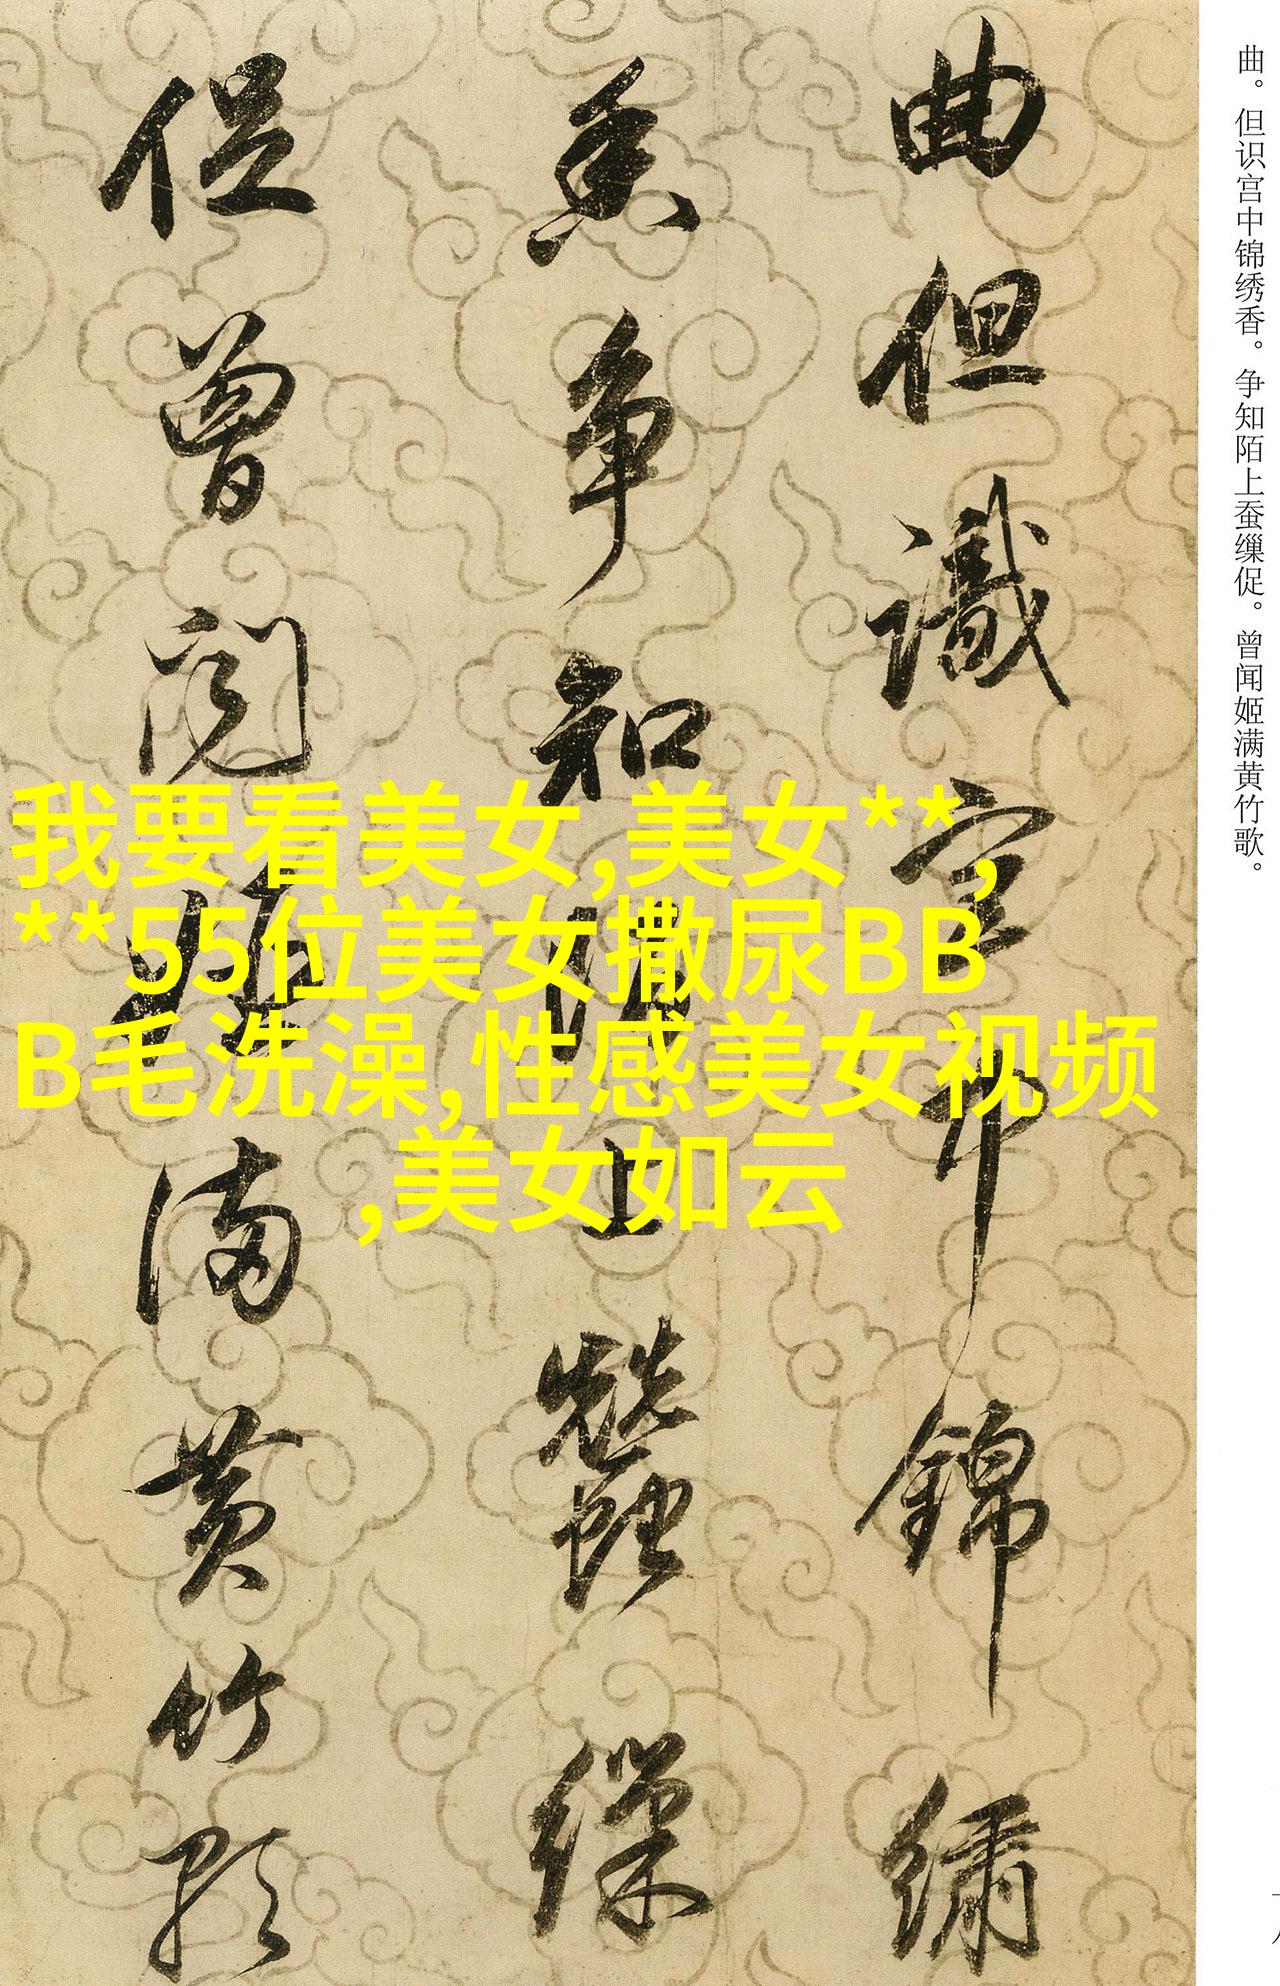 曲。但识宫中锦绣香。争知陌上蚕缫促。曾闻姬满黄竹歌。
曲但識宫中錦繡
香争知陌上蠶繅
促曾聞姬滿黄竹歌
我要看美女,美女**,
**55位美女撒尿BB
B毛洗澡,性感美女视频
,美女如云